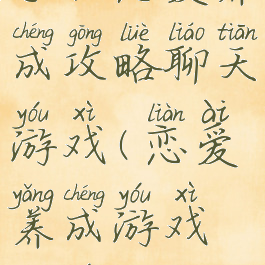 chéng gōng lüè liáo tiān
成攻略聊天
yóu xì liàn ài
游戏(恋爱
yǎng chéng yóu xì
养成游戏